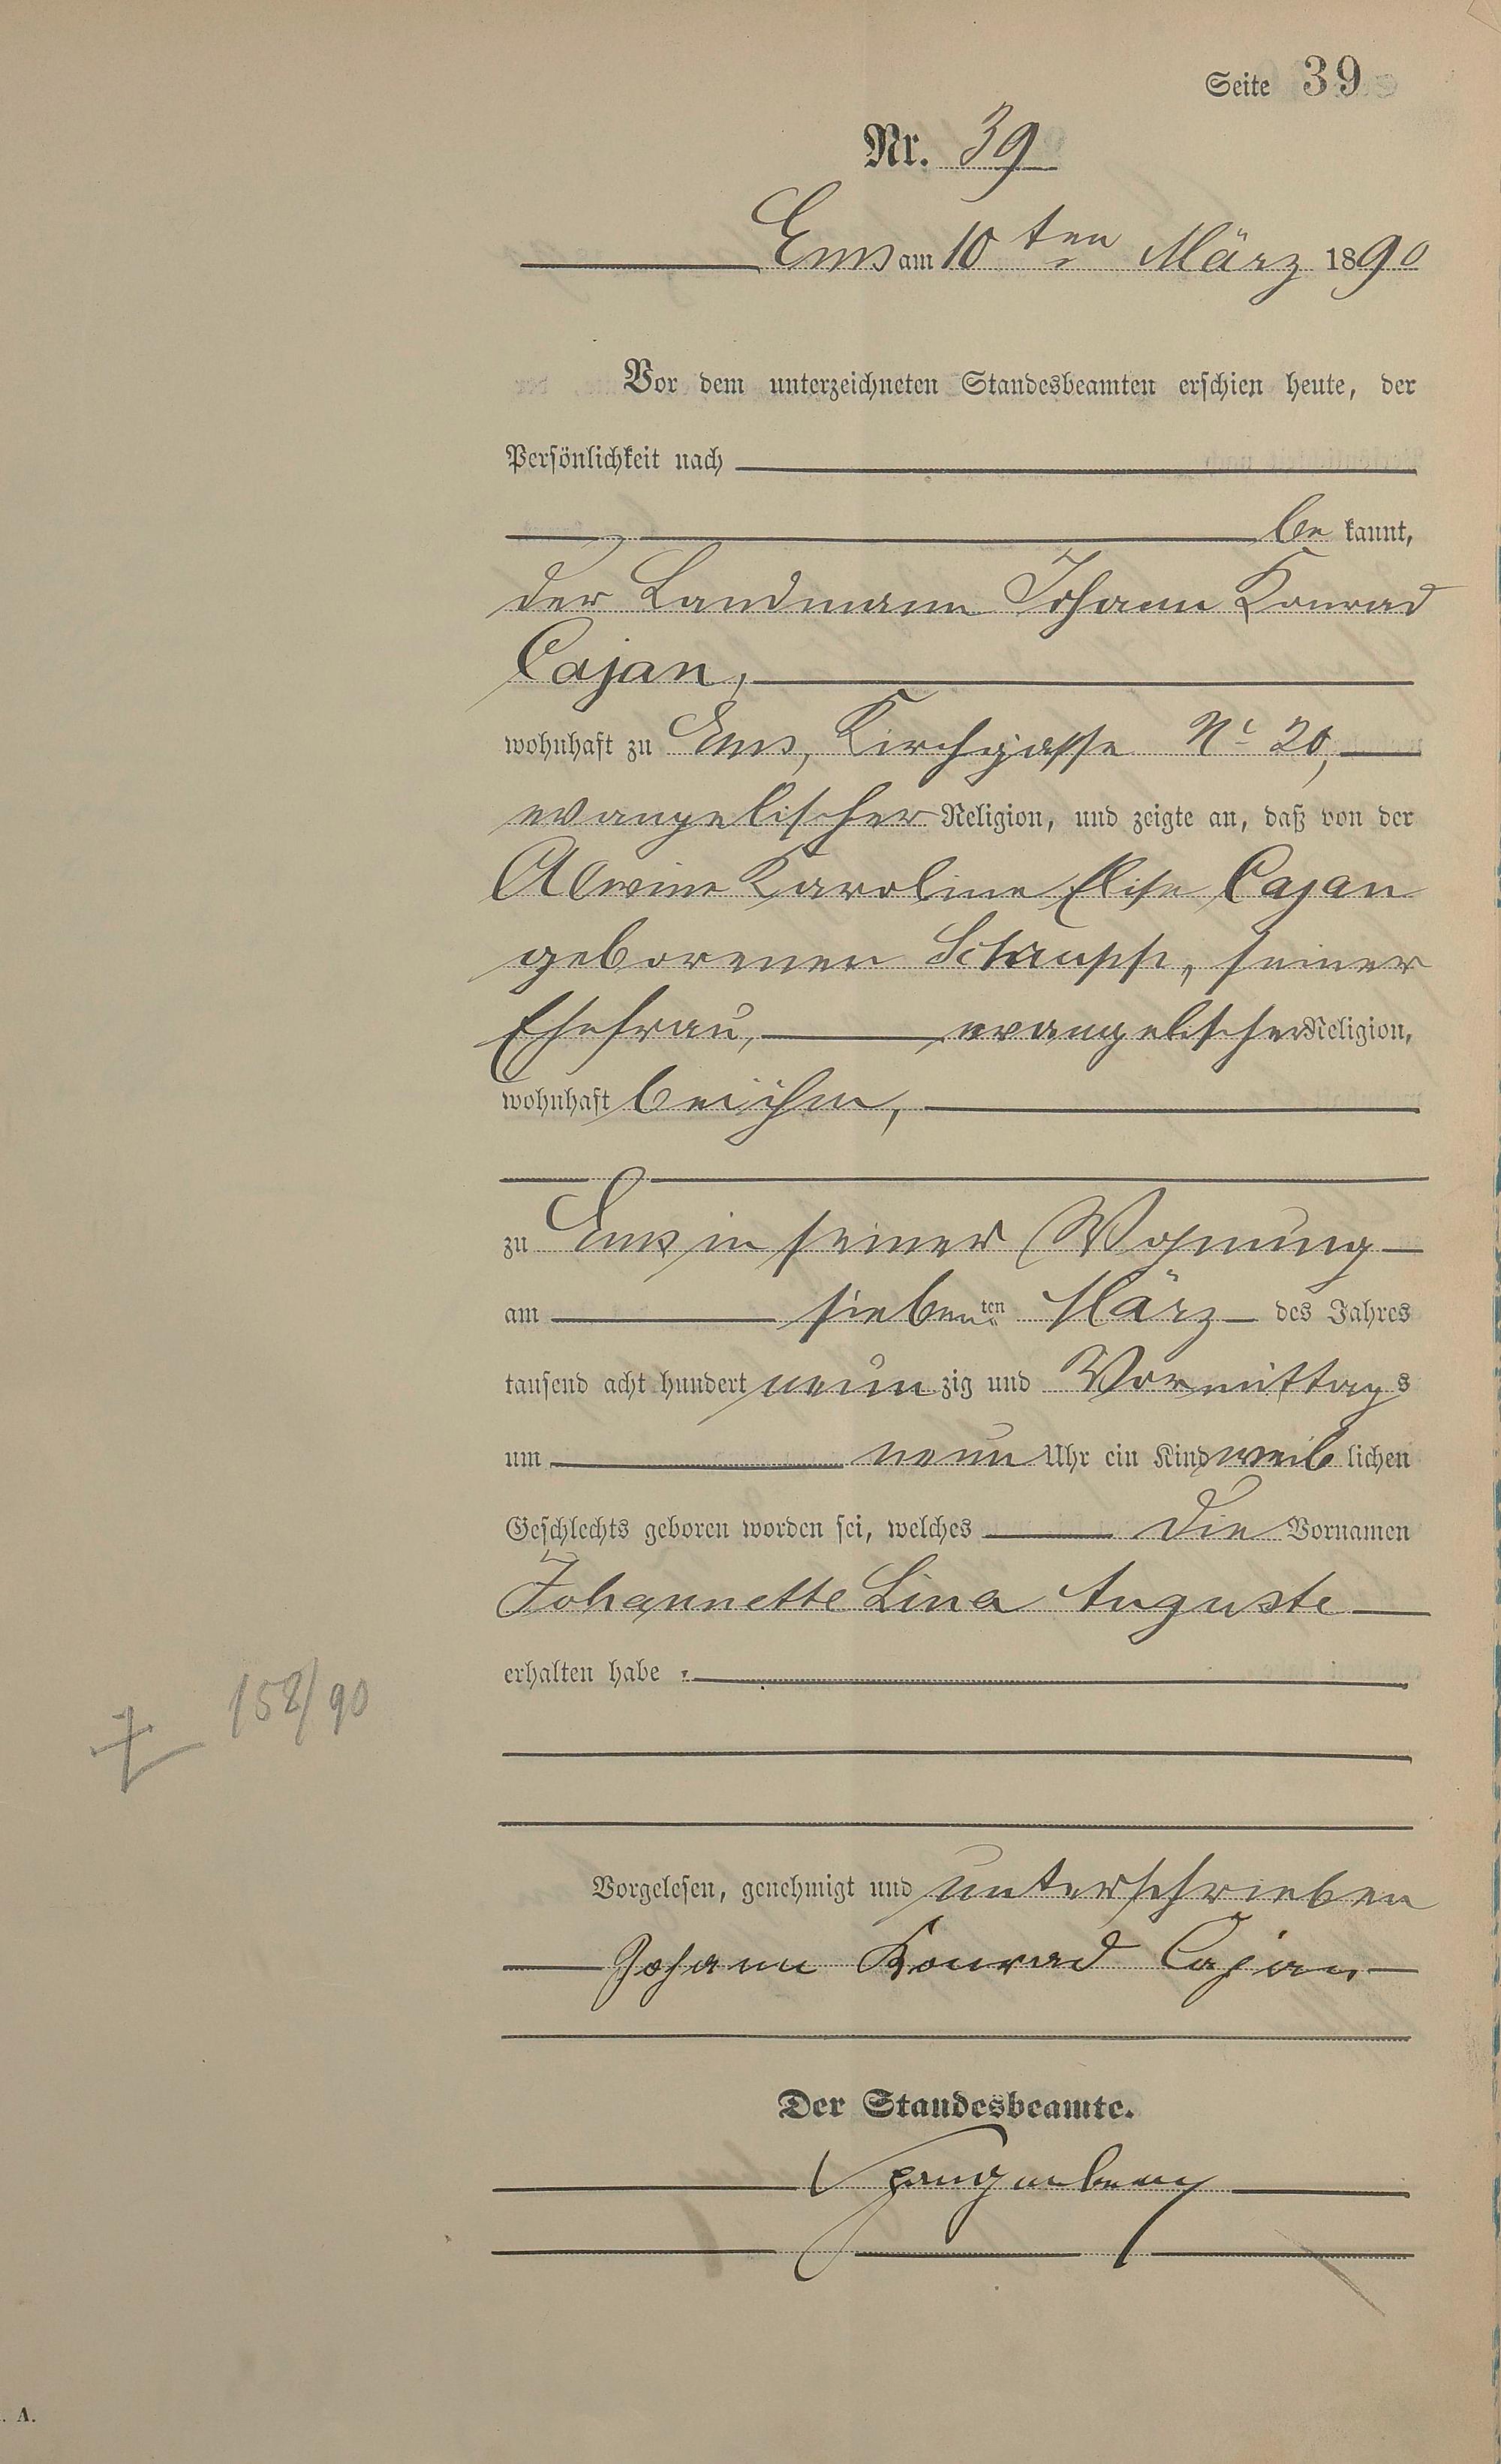 Seite 39
Nr. 39
Ems am 10ten März 1890
Vor dem unterzeichneten Standesbeamten erschien heute, der
Persönlichkeit nach
be kannt,
der Landmann Johann Konrad
Cajan,
wohnhaft zu Ems, Kirchgasse No 20,
evangelischer Religion, und zeigte an, daß von der
Alwine Karoline Elise Cajan
geborenen Schaupp, seiner
Ehefrau, evangelischer Religion,
wohnhaft bei ihm,
zu Ems in seiner Wohnung
am siebenten März des Jahres
tausend acht hundert neun zig und Vormittags
um neun Uhr ein Kind weib lichen
Geschlechts geboren worden sei, welches die Vornamen
Johannette Lina Auguste
erhalten habe.
158/90
Vorgelesen, genehmigt und unterschrieben
Johann Konrad Cajan
Der Standesbeamte.
Spangenberg
. A.